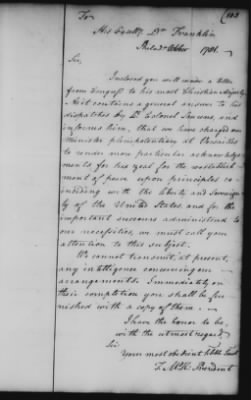 (103
To
His Excelly. Dr. Franklin
Philada. October 1781.
Sir,
Inclosed you will receive a letter
from Congress to his most Christian Majesty
As it contains a general answer to his
dispatches by Lt. Colonel Laurens, and
informs him, that we have charged our
Minister plenipotentiary at Versailles
to render more particular acknowledge
ments for his zeal for the establish
ment of peace upon principles co
inciding with the liberty and Sovereign
ty of the United States and for the
important succours administered to
our necessities, we must call your
attention to this subject.
We cannot transmit, at present,
any intelligence concerning our
arrangements. Immediately on
their completion you shall be fur
nished with a copy of them.
I have the honor to be,
with the utmost regard,
Sir
Your most obedient
T. M:K. President